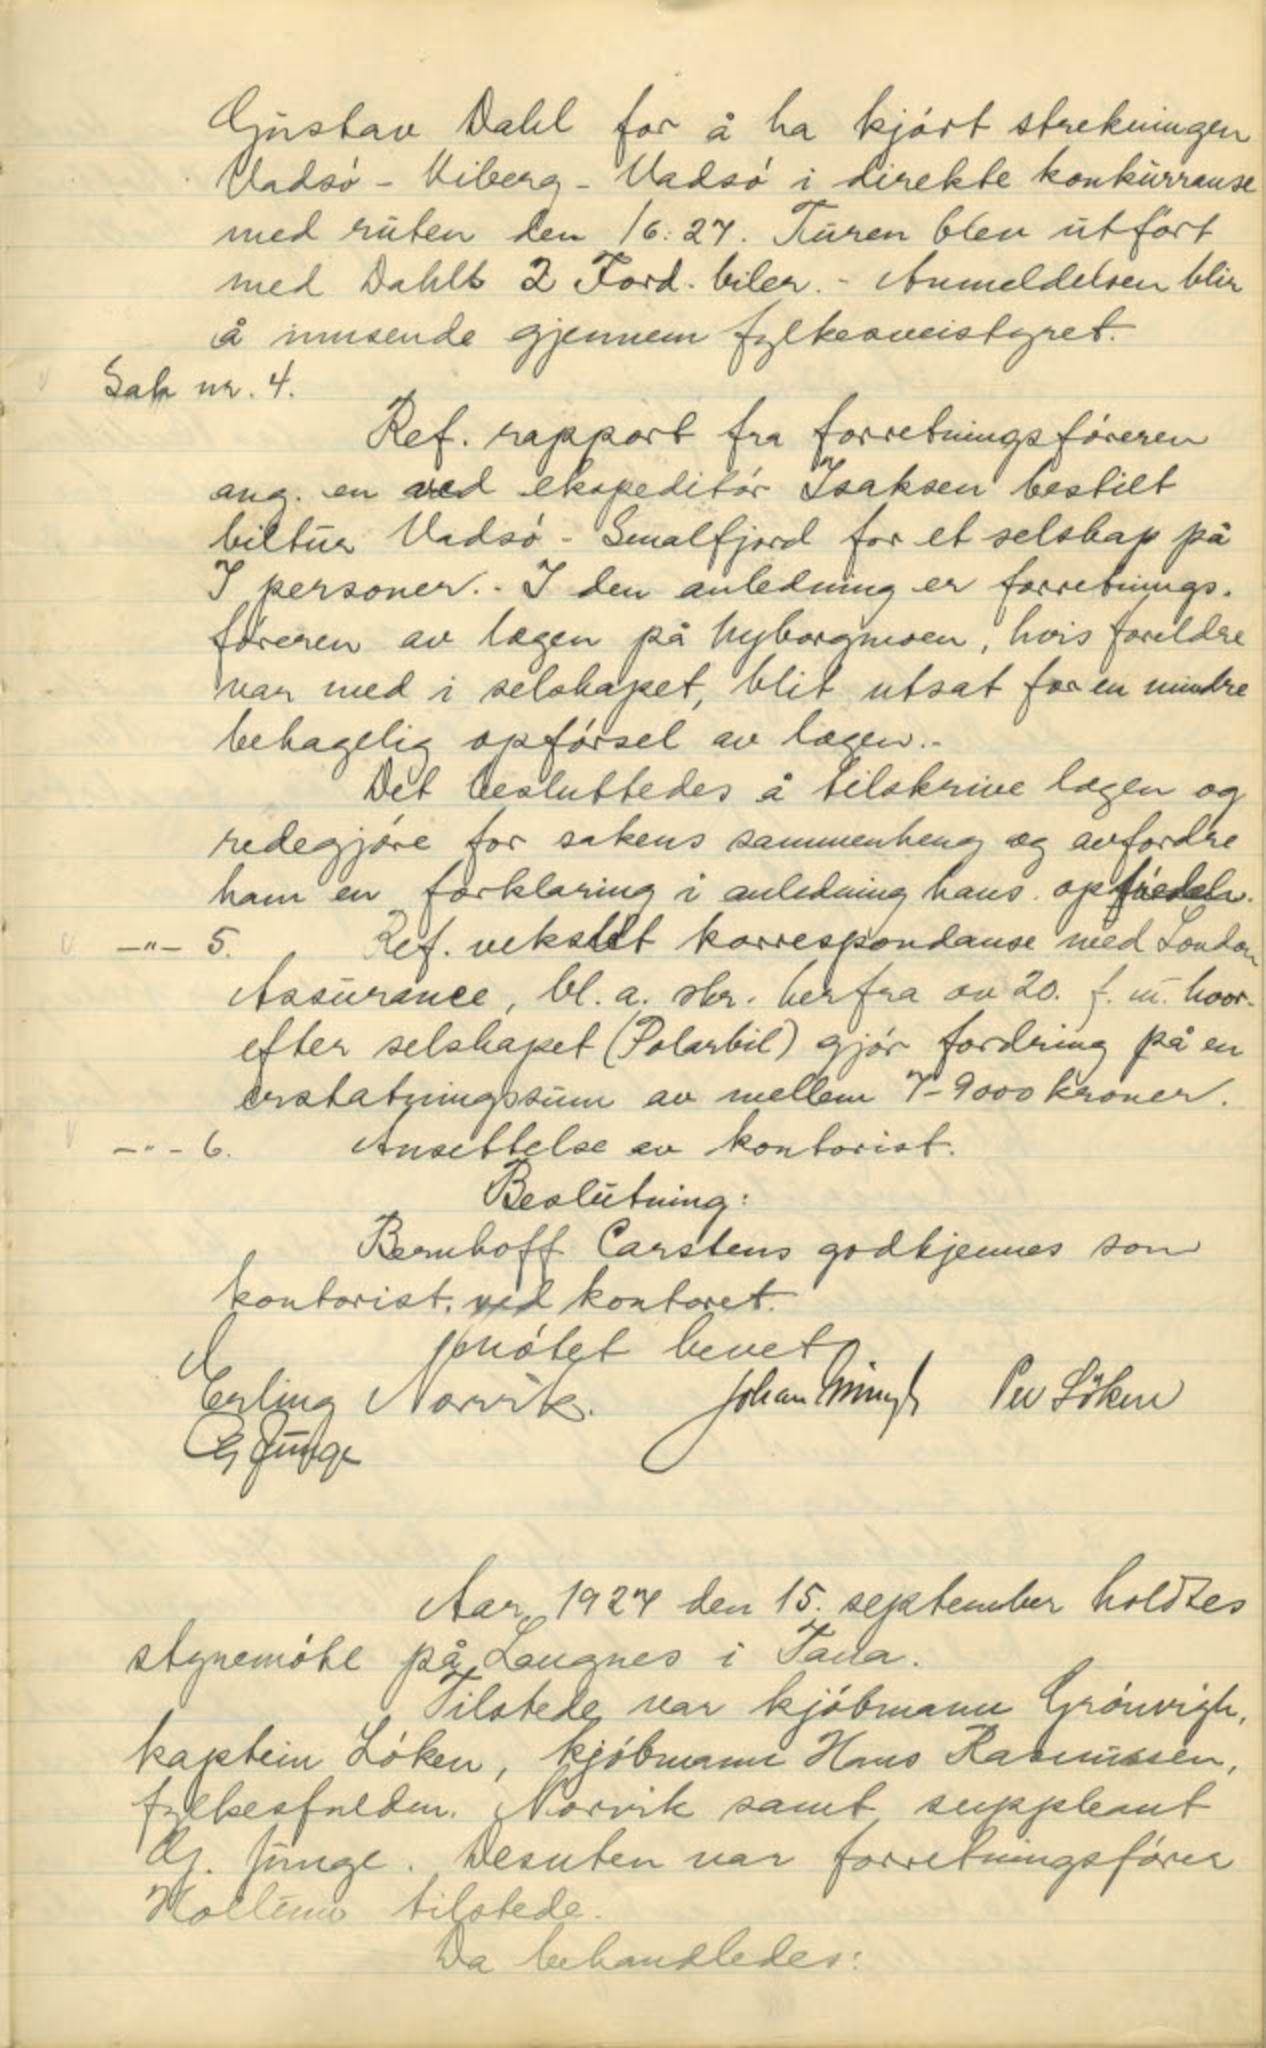 Gustav Dahl for å ha kjórt strekningen
Vadsó - Kiberg - Vadsó i direkte konkurranse
med ruten den 16:27. Turen blev utfórt
med Dahls 2 Ford. biler. - Anmeldelsen blir
å innsende gjennem fylkesveistyret.
Sak nr. 4.
Ref. rapport fra forretningsfóreren
ang. en ved ekspeditór Isaksen bestilt
biltur Vadsó - Smalfjord for et selskap på
7 personer. - I den anledning er forretnings-
fóreren av lægen på Nyborgmoen, hvis foreldre
var med i selskapet, blit utsat for en mindre
behagelig opfórsel av lægen. -
Det besluttedes å tilskrive lægen og
redegjóre for sakens sammenheng og avfordre
ham en forklaring i anledning hans
-"- 5. Ref. vekslet korrespondanse med London
Assurance, bl. a. skr. herfra av 20. f. m. hvor-
efter selskapet (Polarbil) gjór fordring på en
erstatningssum av mellem 7-9000 kroner.
-"- 6. Ansettelse av kontorist.
Beslutning:
Bernhoff Carstens godkjennes som
kontorist. ved kontoret.
Mótet hevet
Erling Norvik. Johan Per Löken
G Junge
Aar 1927 den 15. september holdtes
styremóte på Langnes i Tana.
Tilstede var kjóbmann Grónvigh,
kaptein Lóken, kjóbmann Hans Rasmussen,
fylkesfuldm. Norvik samt suppleant
G. Junge. Desuten var forretningsfórer
tilstede.
Da behandledes: